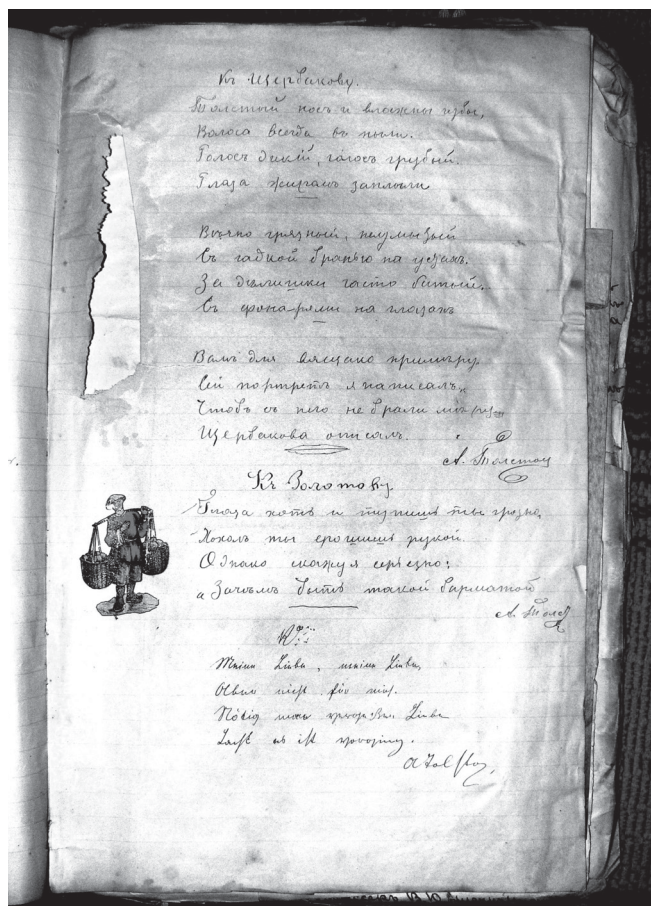 Къ Щербакову.
Толстый носъ и влажны губы,
Волоса всегда въ пыли.
Голосъ дикій, голосъ грубый.
Глаза жиромъ заплыли
Вѣчно грязный, неумытый
Съ гадкой бранью на устахъ.
За дѣлишки часто битый.
Съ фонарями на глазахъ
Вамъ для всяцаго примѣру
Сей портретъ я написалъ,
Чтобъ съ него не брали мѣру
Щербакова описалъ.
А. Толстой
Къ Золотову.
Глаза хоть и пучишь ты грозно,
Хохолъ ты ерошишь рукой.
Однако скажу я серьезно:
Зачѣмъ быть такой барматой
А. Толст
Къ
Meine Liebe, meine Liebe,
nicht für mich.
Liebe
es ist
A Tolstoy.